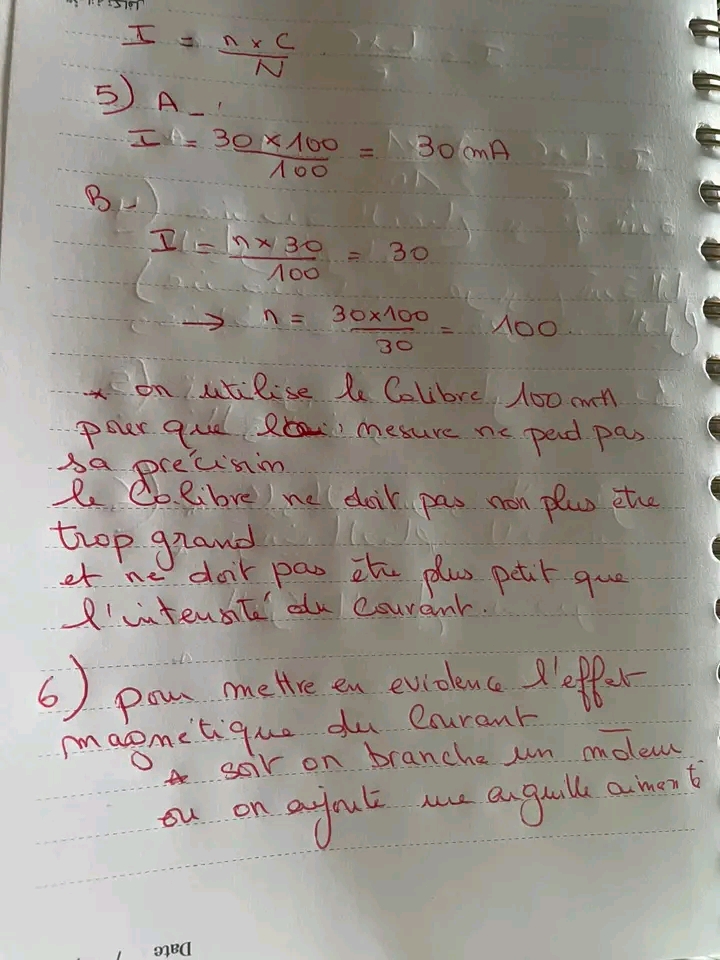 I = n x C / N
5) A -
I = 30 x 100 / 100 = 30 mA
B -
I = n x 30 / 100 = 30
→ n = 30x100 / 30 = 100
* on utilise le Calibre 100 mA
pour que mesure ne perd pas
sa précision
le Calibre ne doit pas non plus être
trop grand
et ne doit pas être plus petit que
l'intensité du Courant.
6) pour mettre en evidence l'effet
magnétique du Courant
* soit on branche un moteur
ou on ajoute une aiguille aimanté
Date